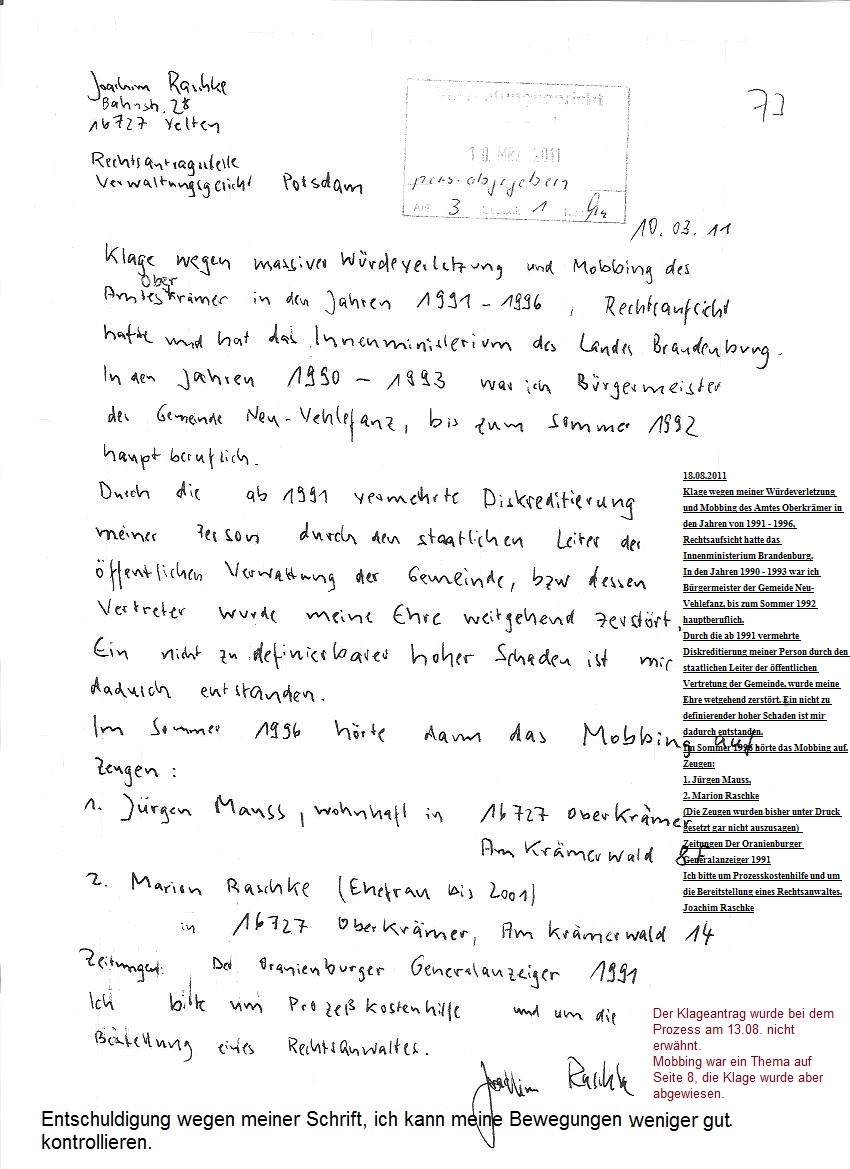 Joachim Raschke
Bahnstr. 28
16727 Velten
73
Rechtsantragstelle
Verwaltungsgericht Potsdam
10. MRZ. 2011
pers. abgegeben
3 1
10.03.11
Klage wegen massiver Würdeverletzung und Mobbing des
Ober
Amteskrämer in den Jahren 1991 - 1996, Rechtsaufsicht
hatte und hat das Innenministerium des Landes Brandenburg.
In den Jahren 1990 - 1993 war ich Bürgermeister
der Gemeinde Neu-Vehlefanz, bis zum Sommer 1992
hauptberuflich.
Durch die ab 1991 vermehrte Diskreditierung
meiner Person durch den staatlichen Leiter der
öffentlichen Verwaltung der Gemeinde, bzw dessen
Vertreter wurde meine Ehre weitgehend zerstört.
Ein nicht zu definierbarer hoher Schaden ist mir
dadurch entstanden.
Im Sommer 1996 hörte dann das Mobbing auf
Zeugen:
1. Jürgen Mauss, wohnhaft in 16727 Oberkrämer
Am Krämerwald
2. Marion Raschke (Ehefrau bis 2001)
in 16727 Oberkrämer, Am Krämerwald 14
Zeitungen: Der Oranienburger Generalanzeiger 1991
Ich bitte um Prozeßkostenhilfe und um die
Bestellung eines Rechtsanwaltes.
Joachim Raschke
18.08.2011
Klage wegen meiner Würdeverletzung
und Mobbing des Amtes Oberkrämer in
den Jahren von 1991 - 1996.
Rechtsaufsicht hatte das
Innenministerium Brandenburg.
In den Jahren 1990 - 1993 war ich
Bürgermeister der Gemeide Neu-
Vehlefanz, bis zum Sommer 1992
hauptberuflich.
Durch die ab 1991 vermehrte
Diskreditierung meiner Person durch den
staatlichen Leiter der öffentlichen
Vertretung der Gemeinde, wurde meine
Ehre wetgehend zerstört. Ein nicht zu
definierender hoher Schaden ist mir
dadurch entstanden.
Im Sommer 1996 hörte das Mobbing auf.
Zeugen:
1. Jürgen Mauss,
2. Marion Raschke
(Die Zeugen wurden bisher unter Druck
gesetzt gar nicht auszusagen)
Zeitungen Der Oranienburger
Generalanzeiger 1991
Ich bitte um Prozesskostenhilfe und um
die Bereitstellung eines Rechtsanwaltes.
Joachim Raschke
Der Klageantrag wurde bei dem
Prozess am 13.08. nicht
erwähnt.
Mobbing war ein Thema auf
Seite 8, die Klage wurde aber
abgewiesen.
Entschuldigung wegen meiner Schrift, ich kann meine Bewegungen weniger gut
kontrollieren.